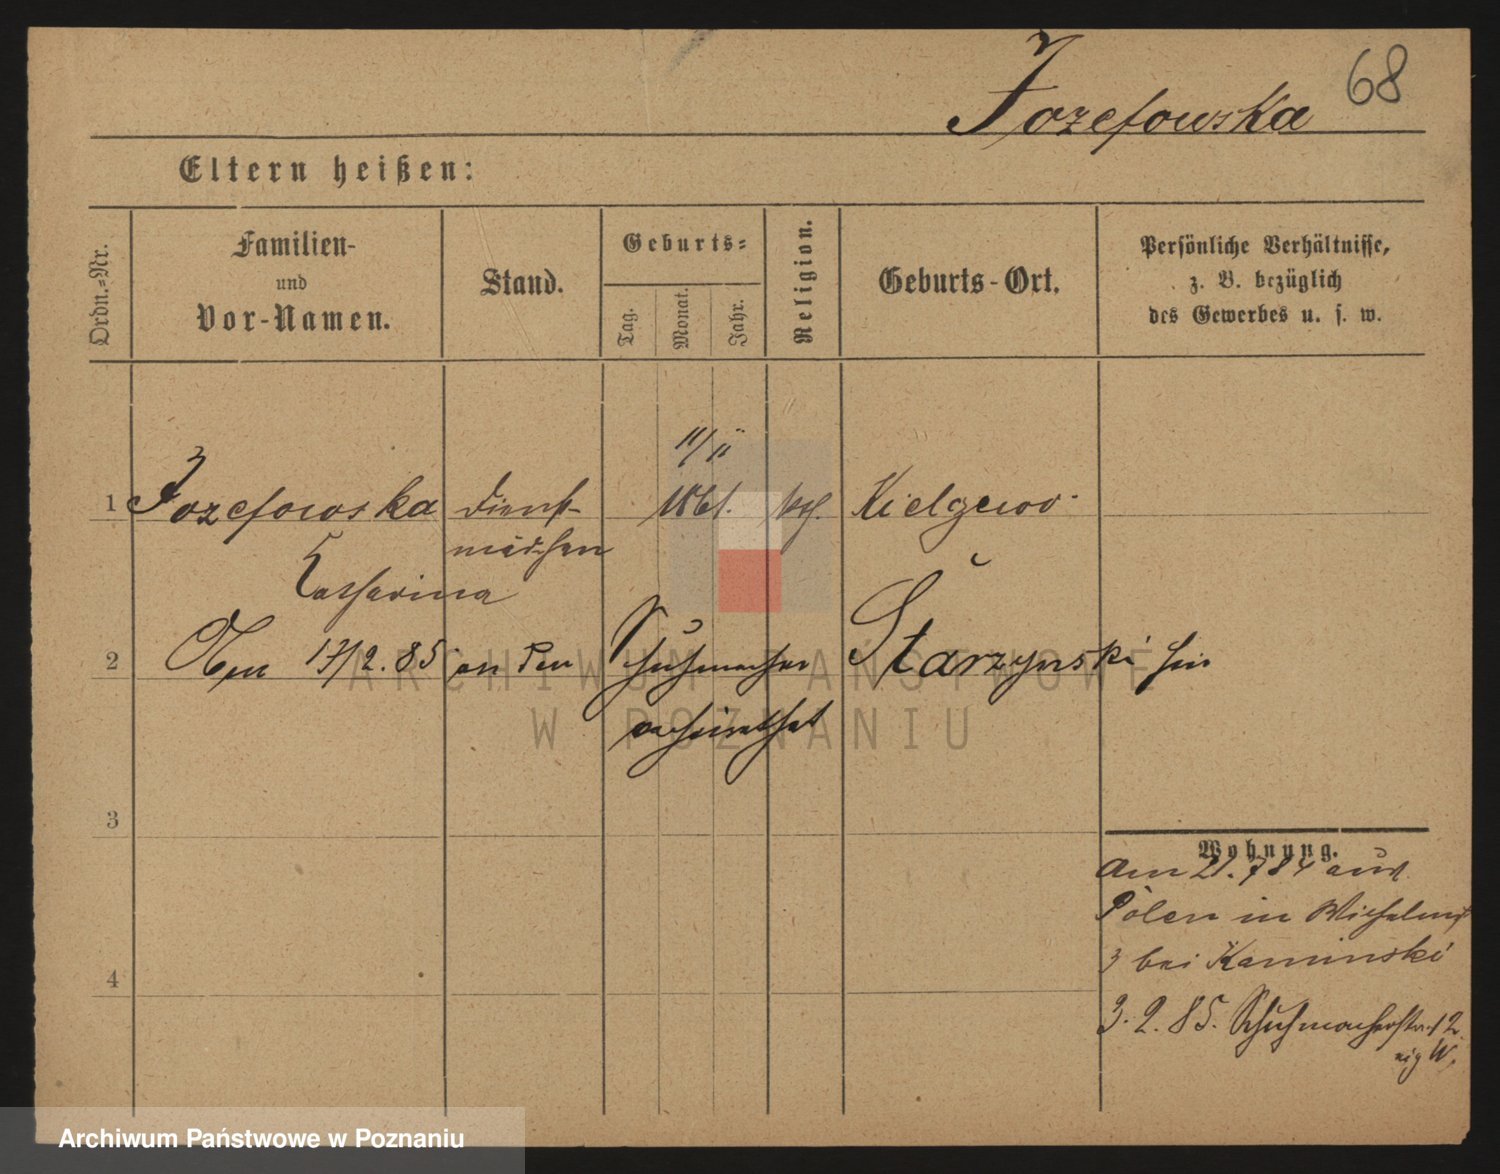 68
Jozefowska
Eltern heißen:
Ordn.-Nr.
Familien-
und
Vor-Namen.
Stand.
Geburts-
Tag.
Monat.
Jahr.
Religion.
Geburts-Ort.
Persönliche Verhältnisse,
z. B. bezüglich
des Gewerbes u. s. w.
11/11
1 Jozefowska Dienst- 1861. kth. Kielgewo
mädchen
Catharina
2 17/2. 85 an den Schuhmacher Starzynski hier
verheirathet
3
Wohnung.
am 21.784 aus
Polen in Wilhelmst
3 bei Kaminski
4
3. 2. 85. Schuhmacherstr. 12
ARCHIWUM PAŃSTWOWE
W POZNANIU
Archiwum Państwowe w Poznaniu